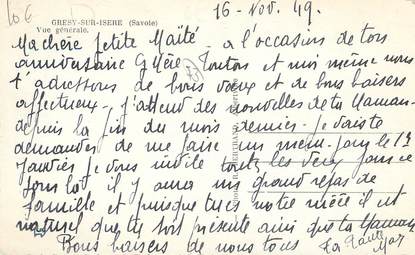 GRESY-SUR-ISERE (Savoie)
Vue générale.
16 - Nov. 49.
Ma chère petite Maïté - à l'occasion de ton
anniversaire Tonton et moi même nous
t'adressons de bons vœux et de bons baisers
affectueux - j'attend des nouvelles de ta Maman
depuis la fin du mois dernier -
demander de me faire un jour le 1er
Janvier je vous invite tous les deux
jour là il y aura un grand repas de
famille et puisque tu es notre nièce il est
naturel que tu sois présente ainsi que ta Maman
Bons baisers de nous tous